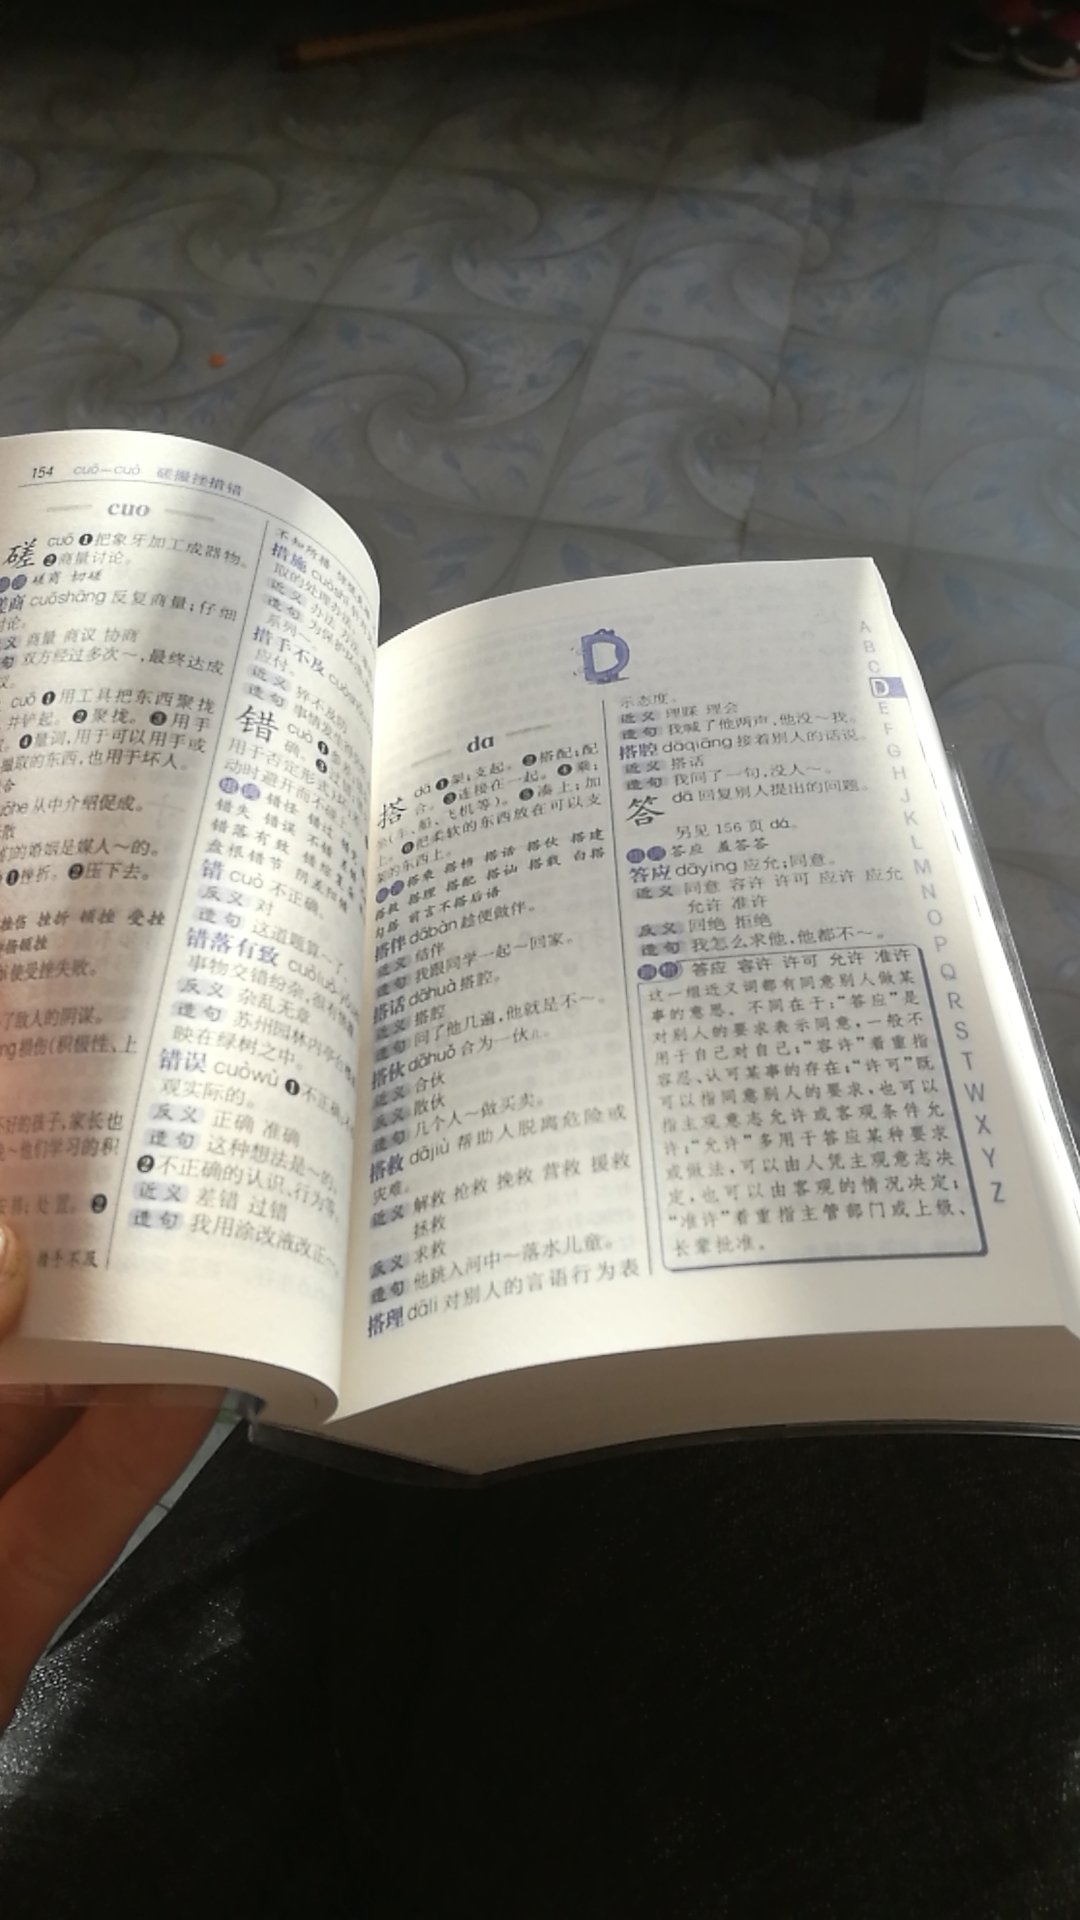 154 cuō—cuò 磋撮挫措错
cuo
磋 cuō ❶把象牙加工成器物。
❷商量讨论。
磋商 切磋
磋商 cuōshāng 反复商量;仔细
讨论。
近义 商量 商议 协商
双方经过多次～,最终达成
cuō ❶用工具把东西聚拢
并铲起。❷聚拢。❸用手
❹量词,用于可以用手或
撮取的东西,也用于坏人。
从中介绍促成。
的婚姻是媒人～的。
❶挫折。❷压下去。
挫伤 挫折 顿挫 受挫
使受挫失败。
了敌人的阴谋。
损伤(积极性、上
不好的孩子,家长也
～他们学习的积
处置。❷
措手不及
措施 cuòshī
取的处理办法
近义 办法 方法
造句 为保护
系列～。
措手不及
应付。
近义
造句 事情发
错 cuò ❶
用于否定形式
动时避开而不碰上
组词 错怪 错过
错失 错误 不错
错落有致
盘根错节
错 cuò 不正确。
反义 对
造句 这道题算～了。
错落有致 cuòluò
事物交错纷杂
反义 杂乱无章
造句 苏州园林内亭
映在绿树之中。
错误 cuòwù ❶不正确
观实际的。
反义 正确 准确
造句 这种想法是～的。
❷不正确的认识、行为等。
近义 差错 过错
造句 我用涂改液改正～。
D
da
搭 dā ❶架;支起。❷搭配;配
合。❸连接在一起。❹乘;
坐(车、船、飞机等)。❺凑上;加
上。❻把柔软的东西放在可以支
架的东西上。
组词 搭乘 搭档 搭话 搭伙 搭建
搭救 搭理 搭配 搭讪 搭载 白搭
勾搭 前言不搭后语
搭伴 dābàn 趁便做伴。
近义 结伴
造句 我跟同学一起～回家。
搭话 dāhuà 搭腔。
近义 搭腔
造句 问了他几遍,他就是不～。
搭伙 dāhuǒ 合为一伙儿。
近义 合伙
反义 散伙
造句 几个人～做买卖。
搭救 dājiù 帮助人脱离危险或
灾难。
近义 解救 抢救 挽救 营救 援救
拯救
反义 求救
造句 他跳入河中～落水儿童。
搭理 dāli 对别人的言语行为表
示态度。
近义 理睬 理会
造句 我喊了他两声,他没～我。
搭腔 dāqiāng 接着别人的话说。
近义 搭话
造句 我问了一句,没人～。
答 dā 回复别人提出的问题。
另见 156 页 dá。
组词 答应 羞答答
答应 dāying 应允;同意。
近义 同意 容许 许可 应许 应允
允许 准许
反义 回绝 拒绝
造句 我怎么求他,他都不～。
辨析 答应 容许 许可 允许 准许
这一组近义词都有同意别人做某
事的意思。不同在于:“答应”是
对别人的要求表示同意,一般不
用于自己对自己;“容许”着重指
容忍、认可某事的存在;“许可”既
可以指同意别人的要求,也可以
指主观意志允许或客观条件允
许;“允许”多用于答应某种要求
或做法,可以由人凭主观意志决
定,也可以由客观的情况决定;
“准许”着重指主管部门或上级、
长辈批准。
A
B
C
D
E
F
G
H
J
K
L
M
N
O
P
Q
R
S
T
W
X
Y
Z